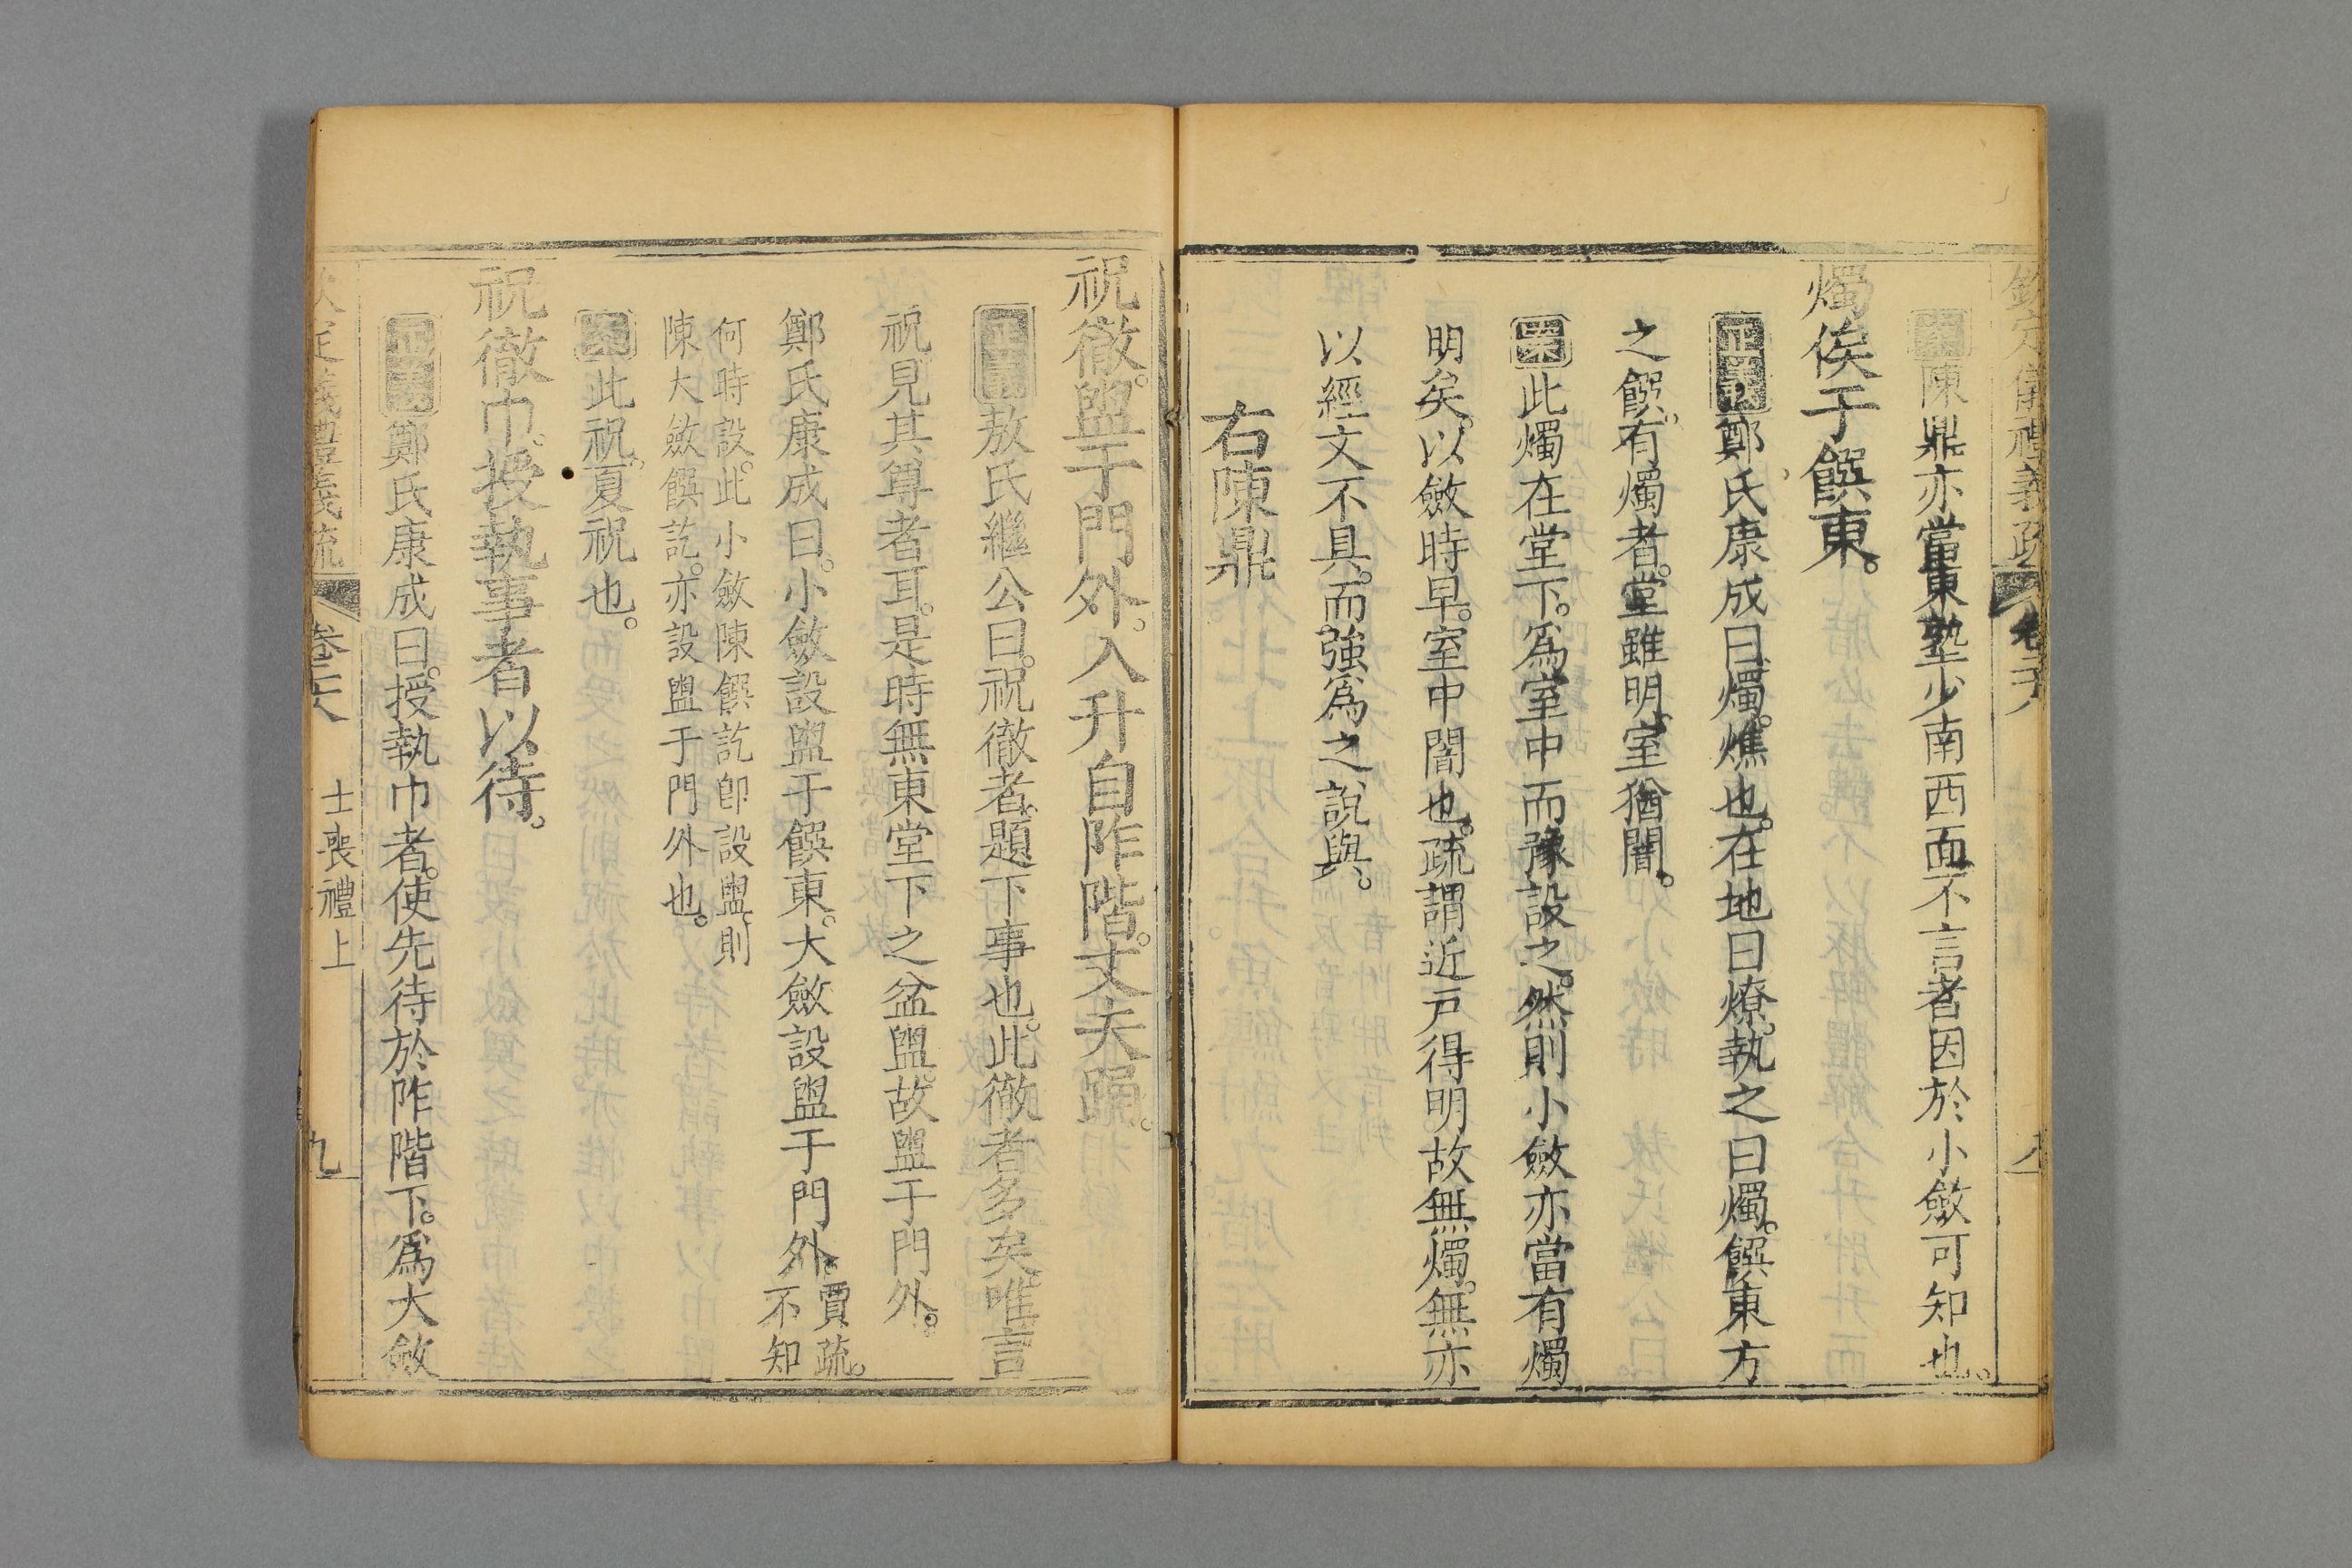 欽定儀禮義疏 卷二十八 八
案陳鼎亦當東塾少南西面不言者因於小斂可知也。
燭俟于饌東。
正義鄭氏康成曰燭燋也。在地曰燎。執之曰燭。饌東方
之饌。有燭者。堂雖明室猶闇。
案此燭在堂下。為室中而豫設之。然則小斂亦當有燭
明矣。以斂時早。室中闇也。疏謂近戶得明故無燭。無亦
以經文不具。而強為之說與。
右陳鼎
祝徹。盥于門外。入升自阼階。丈夫踊。
正義敖氏繼公曰。祝徹者。題下事也。此徹者多矣唯言
祝見其尊者耳。是時無東堂下之盆盥。故盥于門外。
鄭氏康成曰。小斂設盥于饌東。大斂設盥于門外。賈疏。不知
何時設。此小斂陳饌訖卽設盥。則
陳大斂饌訖。亦設盥于門外也。
案此祝。夏祝也。
祝徹巾。授執事者以待。
正義鄭氏康成曰。授執巾者。使先待於阼階下。為大斂
欽定儀禮義疏 卷二十八 士喪禮上 九